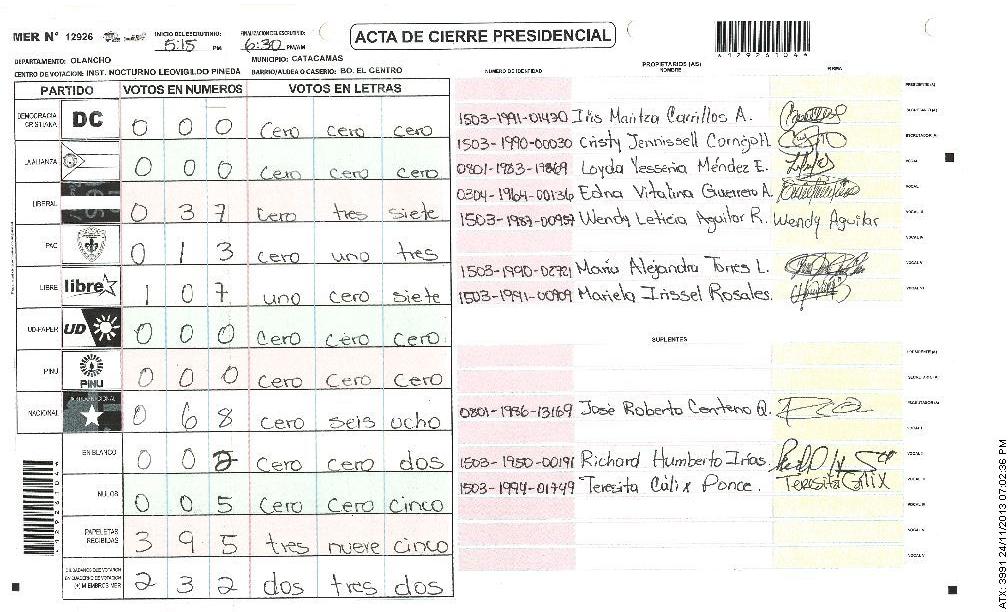 MER N° 12926 INICIO DEL ESCRUTINIO: 5:15 PM FINALIZACION DEL ESCRUTINIO: 6:30 PM/AM
ACTA DE CIERRE PRESIDENCIAL
DEPARTAMENTO: OLANCHO MUNICIPIO: CATACAMAS
CENTRO DE VOTACION: INST. NOCTURNO LEOVIGILDO PINEDA BARRIO/ALDEA O CASERIO: BO. EL CENTRO
PARTIDO VOTOS EN NUMEROS VOTOS EN LETRAS
DEMOCRACIA CRISTIANA DC 0 0 0 Cero cero cero
LA ALIANZA 0 0 0 Cero cero cero
LIBERAL 0 3 7 Cero tres siete
PAC 0 1 3 cero uno tres
LIBRE libre 1 0 7 uno cero siete
UD-FAPER UD 0 0 0 Cero cero cero
PINU PINU 0 0 0 Cero Cero Cero
NACIONAL 0 6 8 cero seis ocho
EN BLANCO 0 0 2 Cero Cero dos
NULOS 0 0 5 Cero Cero cinco
PAPELETAS RECIBIDAS 3 9 5 tres nueve cinco
CIUDADANOS QUE VOTARON EN CUADERNO DE VOTACION (+) MIEMBROS MER 2 3 2 dos tres dos
NUMERO DE IDENTIDAD PROPIETARIOS (AS) NOMBRE FIRMA
PRESIDENTE (A)
1503-1991-01430 Iris Maritza Carrillos A. SECRETARIO (A)
1503-1990-00030 Cristy Jennissell Cornejo H. ESCRUTADOR (A)
0801-1983-19869 Loyda Yessenia Méndez E. VOCAL I
0304-1964-00136 Edna Vitalina Guerrero A. VOCAL II
1503-1987-00957 Wendy Leticia Aguilar R. Wendy Aguilar VOCAL III
VOCAL IV
1503-1990-02721 Maria Alejandra Torres L. VOCAL V
1503-1991-00909 Mariela Irissel Rosales. VOCAL VI
SUPLENTES
PRESIDENTE (A)
SECRETARIO (A)
0801-1986-13169 José Roberto Centeno Q. ESCRUTADOR (A)
VOCAL I
1503-1950-00191 Richard Humberto Irías. VOCAL II
1503-1994-01749 Teresita Cálix Ponce. Teresita Calix VOCAL III
VOCAL IV
VOCAL V
ATX: 3991 24/11/2013 07:02:36 PM